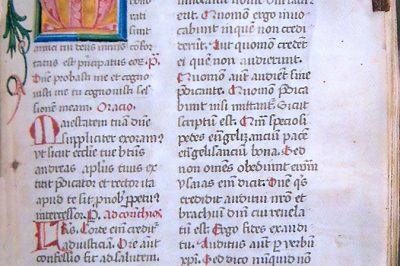 rati
sunt
amici tui deus nimis confor
tatus est principatus eoꝝ. P.
Dñe probasti me et cogno
visti me tu cognovisti ses
sionem meam. Oracio.
Maiestatem tuā dñe
suppliciter exoram9
ut sicut ecclie tue btūs
andreas aplus tuus ex
titit p̄dicator et rector ita
apud te sit p nob ppetu9
intercessor. P. ad corīthios
Frs. Corde enim credit̄
ad iusticiam. Ore aut
confessio fit ad salutem.
Quomō ergo invo
cabunt in quē non credi
derūt. Aut quomō credēt
ei quē non audierunt.
Quomō aut audient sine
p̄dicante. Quomō p̄dica
bunt nisi mittant̄. Sicut
scriptum est. Qm̄ speciosi
pedes evāgelizanciū pacē
evāgelisanciū bona. Sed
non omēs obediunt evā
ysaias em dicit. Dñe qs
credidit auditui nrō et
brachium dm̄ cui revela
tū est. Ergo fides ex audi
tu. Auditus aut p verbū
xpi. Sed dico nunquid nō